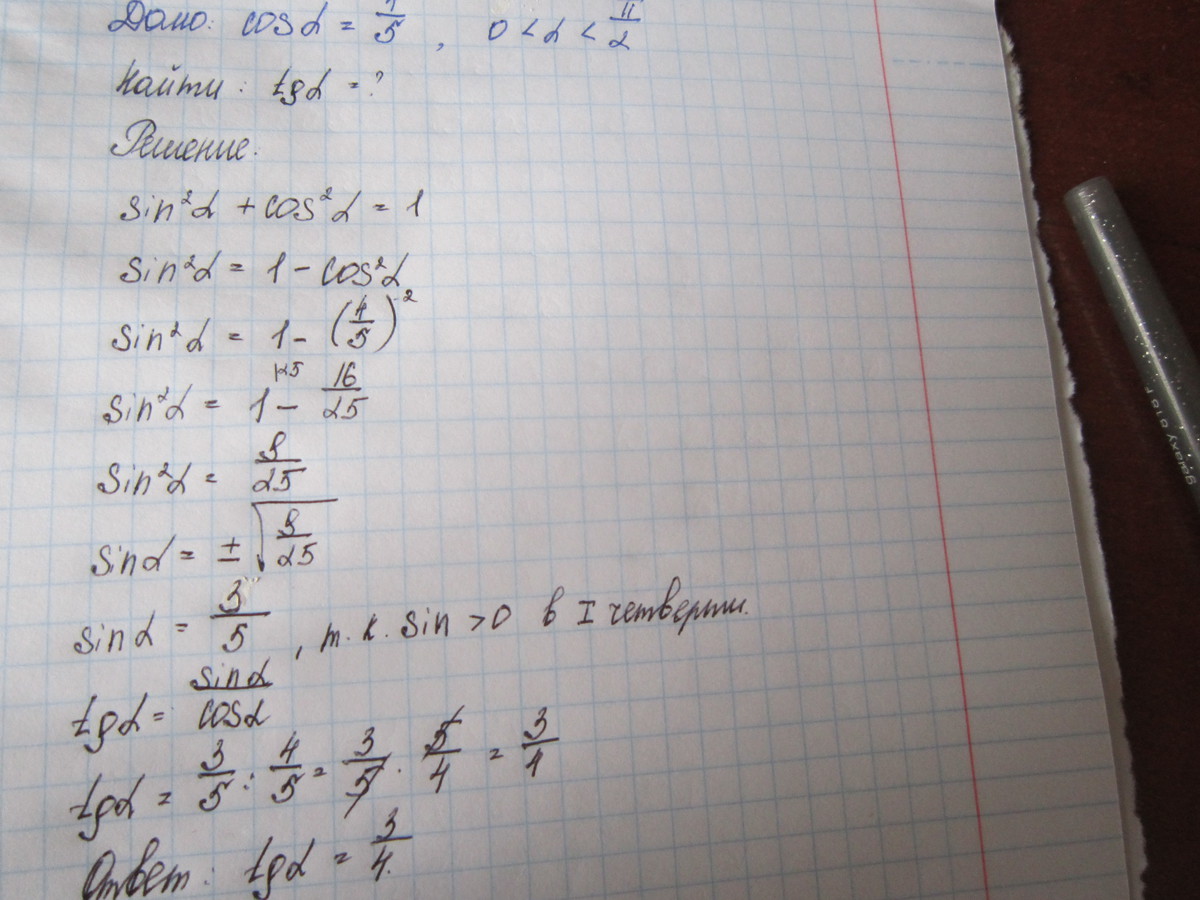 Дано: cos α = 4/5 , 0 < α < π/2
Найти: tg α = ?
Решение.
sin²α + cos²α = 1
sin²α = 1 - cos²α
sin²α = 1 - (4/5)²
sin²α = 1\25 - 16/25
sin²α = 9/25
sin α = ± √(9/25)
sin α = 3/5 , т.к. sin > 0 в I четверти.
tg α = sin α/cos α
tg α = 3/5 : 4/5 = 3/5 · 5/4 = 3/4
Ответ: tg α = 3/4.